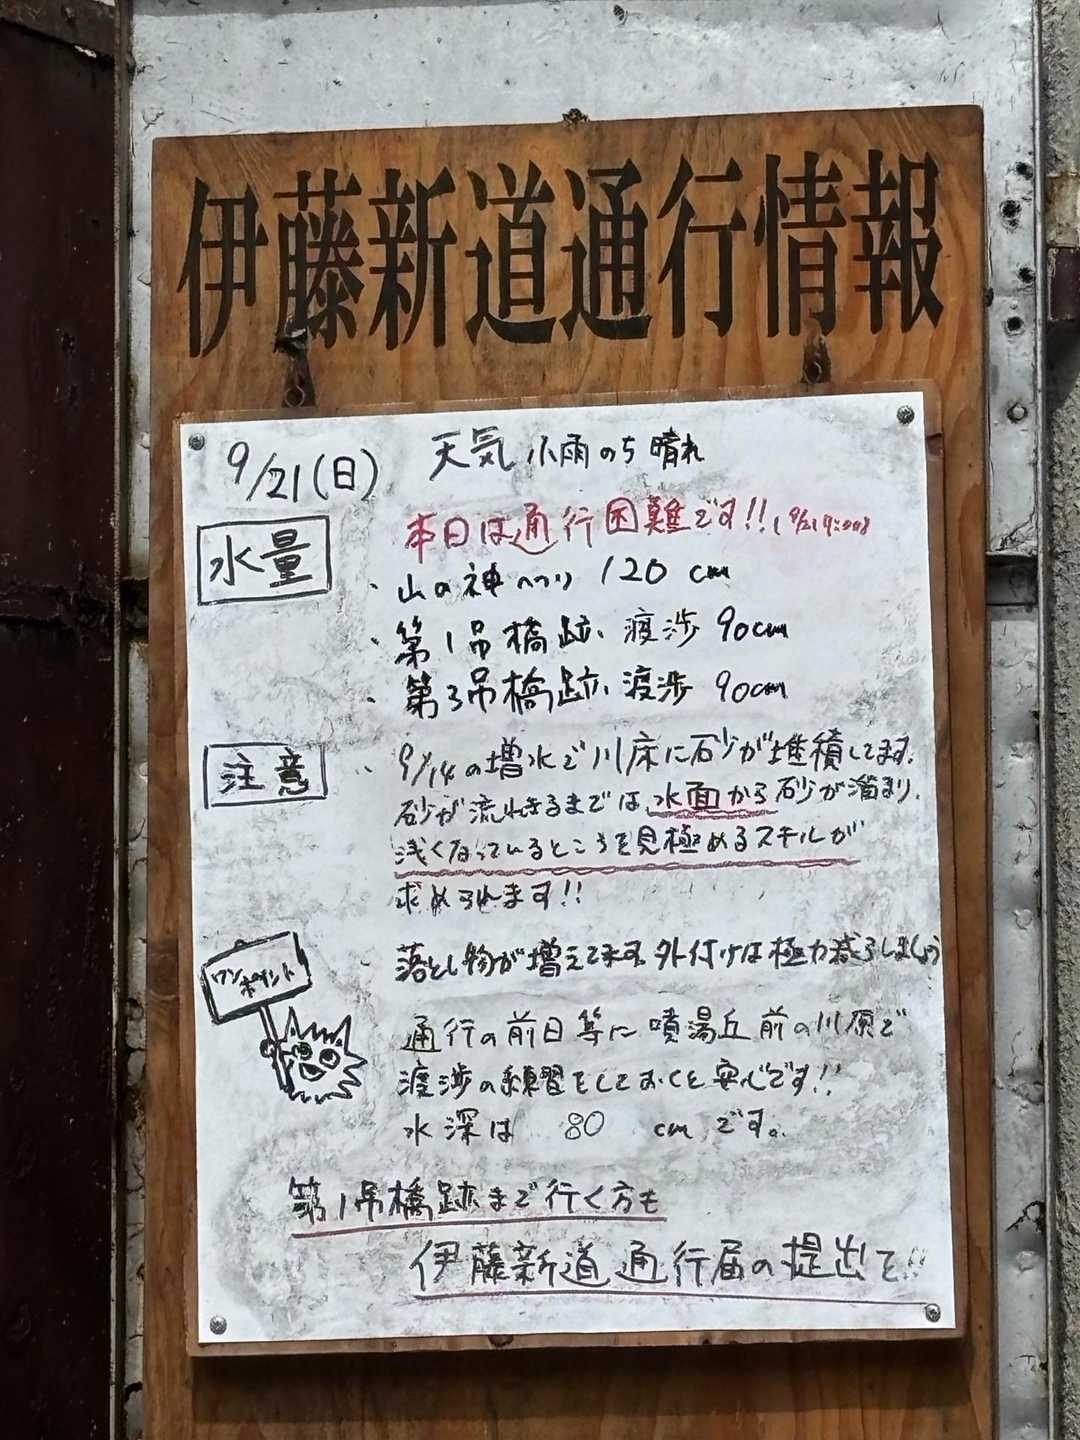 伊藤新道通行情報
9/21(日) 天気 小雨のち晴れ
水量 本日は通行困難です!! (9/21 9:00)
・山の神へつり 120 cm
・第1吊橋跡、渡渉 90cm
・第3吊橋跡、渡渉 90cm
注意 ・9/14の増水で川床に石砂が堆積してます。
砂が流れきるまでは、水面から砂が溜まり、
浅くなっているところを見極めるスキルが
求められます!!
・落とし物が増えてます。外付けは極力減らしましょう
ワン
ポイント
通行の前日等に噴湯丘前の川原で
渡渉の練習をしておくと安心です!!
水深は 80 cm です。
第1吊橋跡まで行く方も
伊藤新道通行届の提出を!!